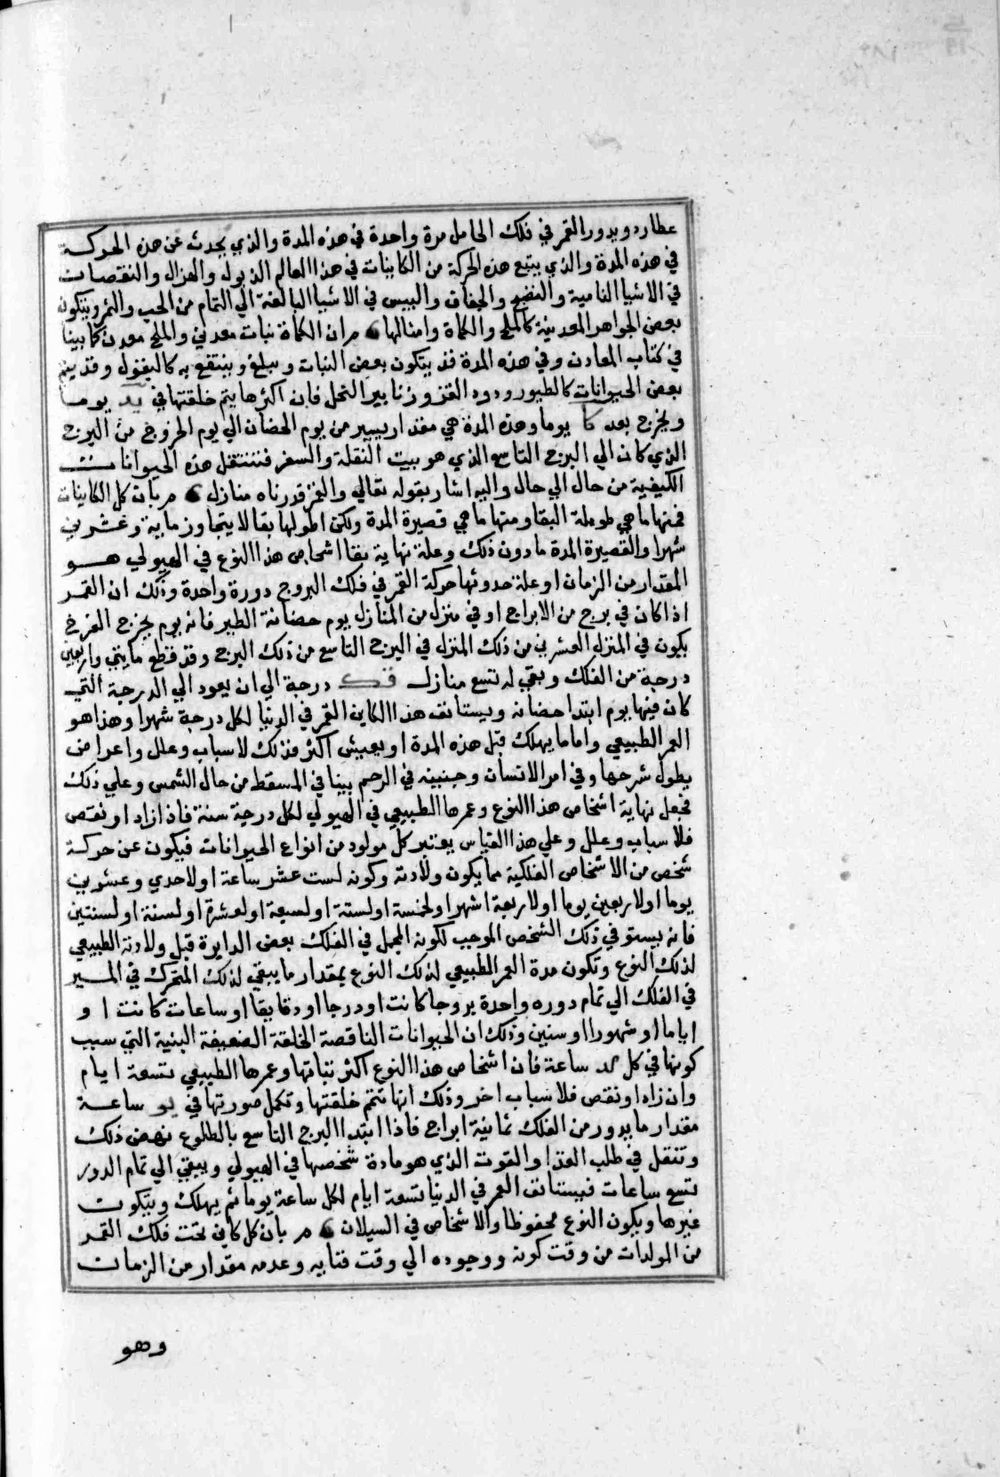 عطارد ويدور القمر في فلك الحامل مرة واحدة في هذه المدة والذي يحدث عن هذه الحركة
في هذه المدة والذي يتبع هذه الحركة من الكاينات في هذا العالم الذبول والهزال والنقصات
في الاشيا النامية والنضج والجفاف واليبس في الاشيا البالغة الي التمام من الحب والثمر ويتكون
بعض الجواهر المعدنية كالملح والكماة وامثالها م ان الكماة نبات معدني والملح معدن كما بينا
في كتاب المعادن وفي هذه المدة قد يتكون بعض النبات ويبلغ وينتفع به كالبقول وقد يتم
بعض الحيوانات كالطيور ودود القز وزنابير النحل فان اكثرها يتم خلقتها في يد يوما
ويخرج بعد كا يوما وهذه المدة هي مقدار يسير من يوم الحضان الي يوم الخروج من البرج
الذي كان الي البرج التاسع الذي هو بيت النقلة والسفر فتنتقل هذه الحيوانات
الكيفية من حال الي حال واليه اشار بقوله تعالي والقمر قدرناه منازل م بان كل الكاينات
فمنها ما هي طويلة البقا ومنها ما هي قصيرة المدة ولكن اطولها بقا لا يتجاوز ماية وعشرين
شهرا والقصيرة المدة ما دون ذلك وعلة نهاية بقا اشخاص هذا النوع في الهيولي هو
المقدار من الزمان او علة حدوثها حركة القمر في فلك البروج دورة واحدة وذلك ان القمر
اذا كان في برج من الابراج او في منزل من المنازل يوم حضانة الطير فانه يوم يخرج الفرخ
يكون في المنزل العشرين من ذلك المنزل في البرج التاسع من ذلك البرج وقد قطع مايتي واربعين
درجة من الفلك وبقي له تسع منازل قك درجة الي ان يعود الي الدرجة التي
كان فيها يوم ابتدا حضانه ويستانف هذا الكاين القمر في الدنيا لكل درجة شهرا وهذا هو
العمر الطبيعي واما ما يهلك قبل هذه المدة او يعيش اكثر فذلك لاسباب وعلل واعراض
يطول شرحها وفي امر الانسان وجنينه في الرحم بينا في المسقط من حال الشمس وعلي ذلك
فجعل نهاية اشخاص هذا النوع وعمرها الطبيعي في الهيولي لكل درجة سنة فاذا زاد او نقص
فلاسباب وعلل وعلي هذا القياس يعتبر كل مولود من انواع الحيوانات فيكون عن حركة
شخص من الاشخاص الفلكية مما يكون ولادته وكونه لست عشر ساعة او لاحدي وعشرين
يوما او لاربعين يوما او لاربعة اشهر او لخمسة او لستة او لسبعة او لعشرة او لسنة او لسنتين
فانه يستوفي ذلك الشخص الموجب لكونه المجمل في الفلك بعض الدايرة قبل ولادته الطبيعي
لذلك النوع وتكون مدة العمر الطبيعي لذلك النوع بمقدار ما يبقي لذلك المتحرك في المسير
في الفلك الي تمام دوره واحدة بروجا كانت او درجا او دقايقا او ساعات كانت او
اياما او شهورا او سنين وذلك ان الحيوانات الناقصة الخلقة الضعيفة البنية التي سبب
كونها في كل كد ساعة فان اشخاص هذا النوع اكثر نباتها وعمرها الطبيعي تسعة ايام
وان زاد او نقص فلاسباب اخر وذلك انها تتم خلقتها وتكمل صورتها في يو ساعة
مقدار ما يدور من الفلك ثمانية ابراج فاذا ابتدا البرج التاسع بالطلوع نهض ذلك
وتنقل في طلب الغذا والقوت الذي هو مادة شخصها في الهيولي ويبقي الي تمام الدور
تسع ساعات فيستانف العمر في الدنيا تسعة ايام لكل ساعة يوما ثم يهلك ويتكون
غيرها ويكون النوع محفوظا والاشخاص في السيلان م بان كل كاين تحت فلك القمر
من المولدات من وقت كونه ووجوده الي وقت فنايه وعدمه مقدار من الزمات
وهو